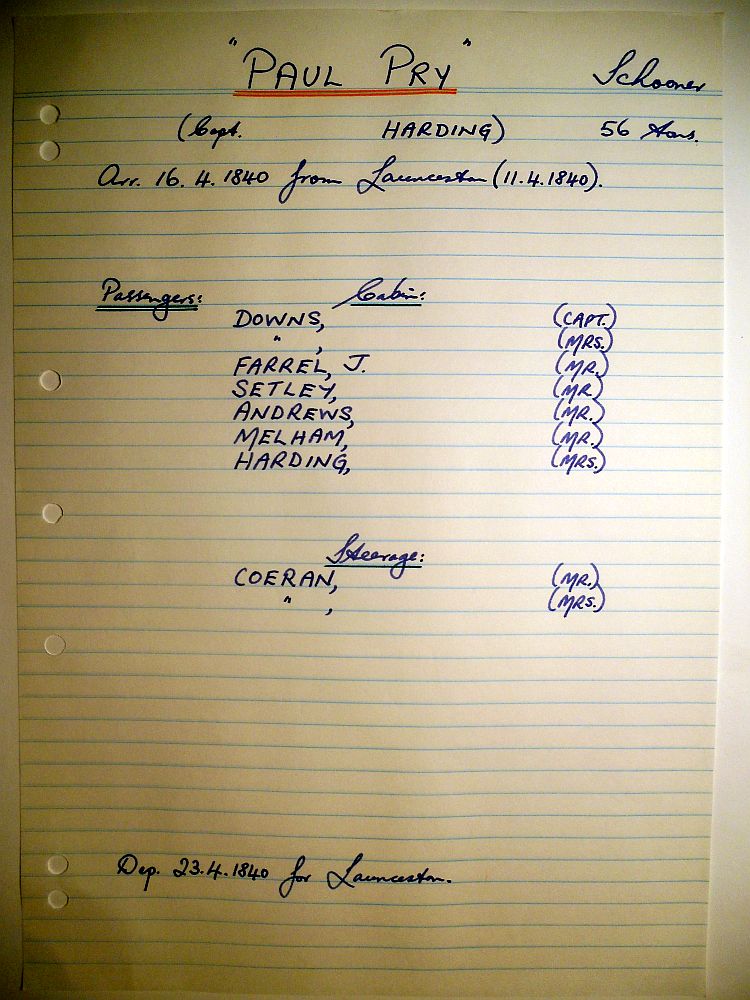 "PAUL PRY" Schooner
(Capt. HARDING) 56 tons.
Arr. 16.4.1840 from Launceston (11.4.1840).
Passengers: Cabin:
DOWNS, (CAPT.)
" , (MRS.)
FARREL, J. (MR.)
SETLEY, (MR.)
ANDREWS, (MR.)
MELHAM, (MR.)
HARDING, (MRS.)
Steerage:
COERAN, (MR.)
" , (MRS.)
Dep. 23.4.1840 for Launceston.